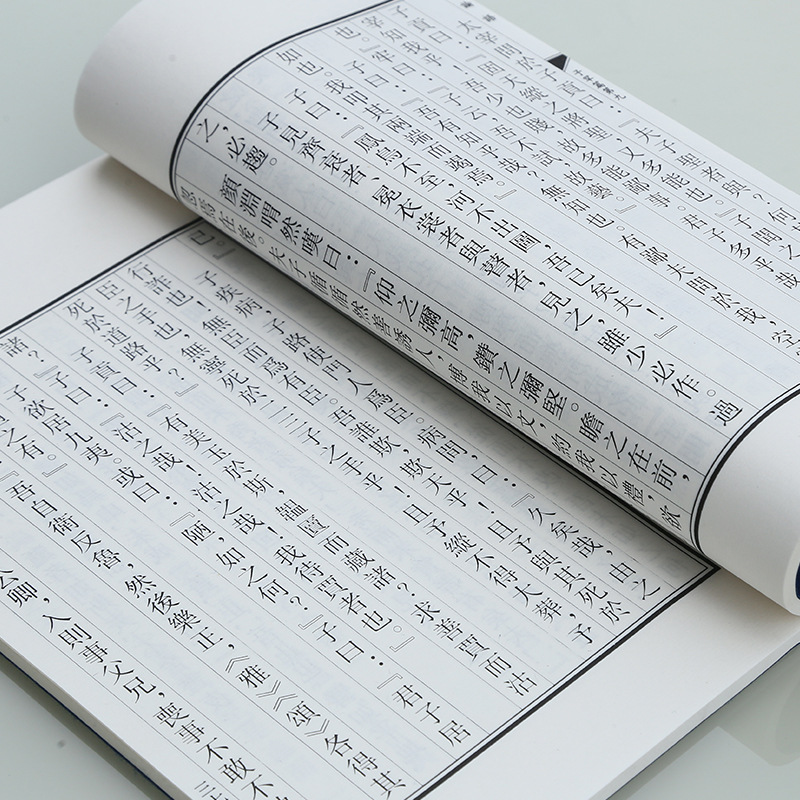 論語
子罕篇第九
太宰問於子貢曰:『夫子聖者與?何
子貢曰:『固天縱之將聖,又多能也。』子聞之
宰知我乎!吾少也賤,故多能鄙事。君子多乎哉
也。』牢曰:『子云,吾不試,故藝。』
子曰:『吾有知乎哉?無知也。有鄙夫問於我,空
如也。我叩其兩端而竭焉。』
子曰:『鳳鳥不至,河不出圖,吾已矣夫!』
子見齊衰者、冕衣裳者與瞽者,見之,雖少必作。過
之,必趨。
顏淵喟然嘆曰:『仰之彌高,鑽之彌堅。瞻之在前,
忽焉在後。夫子循循然善誘人,博我以文,約我以禮,欲
已。』
子疾病,子路使門人爲臣。病間,曰:『久矣哉,由之
行詐也!無臣而爲有臣。吾誰欺,欺天乎!且予與其死於
臣之手也,無寧死於二三子之手乎!且予縱不得大葬,予
死於道路乎?』
子貢曰:『有美玉於斯,韞匵而藏諸?求善賈而沽
諸?』子曰:『沽之哉!沽之哉!我待賈者也。』
子欲居九夷。或曰:『陋,如之何?』子曰:『君子居
之有。』
『吾自衛反魯,然後樂正,《雅》《頌》各得其
公卿,入則事父兄,喪事不敢不